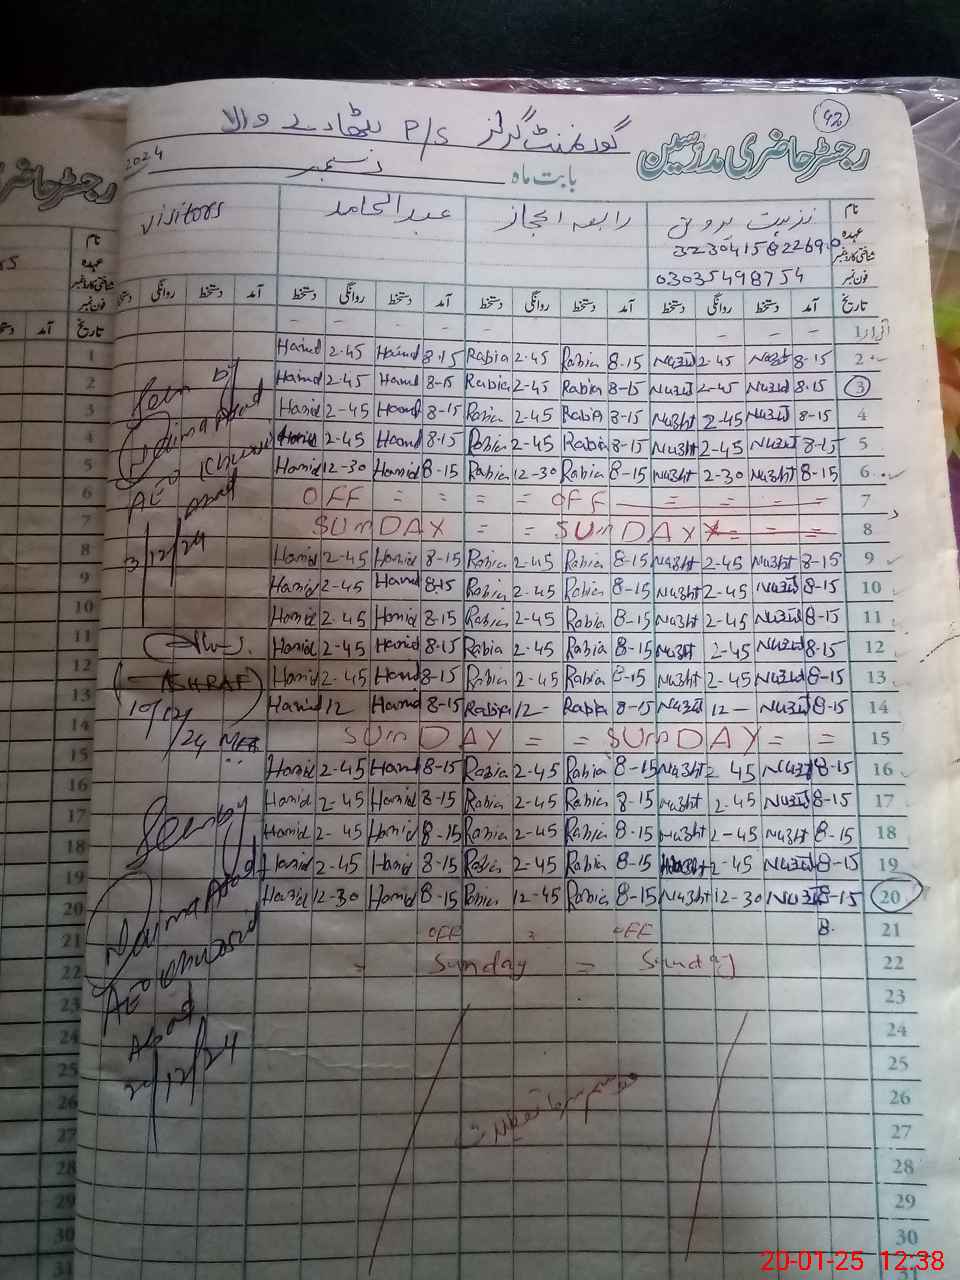 42
رجسٹر حاضری مدرسین
گورنمنٹ گرلز P/S
والا
بابت ماہ دسمبر 2024
نام نزہت پروین رابعہ اعجاز عبدالحامد Visitors
عہدہ
شناختی کارڈ نمبر
فون نمبر 03035498754
تاریخ آمد دستخط روانگی دستخط آمد دستخط روانگی دستخط آمد دستخط روانگی دستخط آمد دستخط روانگی
1 اتوار
Hamid 2-45 Hamid 8-15 Rabia 2-45 Rabia 8-15 Nuzht 2-45 Nuzht 8-15 2
Hamid 2-45 Hamid 8-15 Rabia 2-45 Rabia 8-15 Nuzht 2-45 Nuzht 8-15 3
Hamid 2-45 Hamid 8-15 Rabia 2-45 Rabia 8-15 Nuzht 2-45 Nuzht 8-15 4
Hamid 2-45 Hamid 8-15 Rabia 2-45 Rabia 8-15 Nuzht 2-45 Nuzht 8-15 5
Hamid 12-30 Hamid 8-15 Rabia 12-30 Rabia 8-15 Nuzht 2-30 Nuzht 8-15 6
OFF = = = = OFF = = = 7
SUNDAY = = SUNDAY = = = 8
Hamid 2-45 Hamid 8-15 Rabia 2-45 Rabia 8-15 Nuzht 2-45 Nuzht 8-15 9
Hamid 2-45 Hamid 8-15 Rabia 2-45 Rabia 8-15 Nuzht 2-45 Nuzht 8-15 10
Hamid 2-45 Hamid 8-15 Rabia 2-45 Rabia 8-15 Nuzht 2-45 Nuzht 8-15 11
Hamid 2-45 Hamid 8-15 Rabia 2-45 Rabia 8-15 Nuzht 2-45 Nuzht 8-15 12
Hamid 2-45 Hamid 8-15 Rabia 2-45 Rabia 8-15 Nuzht 2-45 Nuzht 8-15 13
Hamid 12 Hamid 8-15 Rabia 12- Rabia 8-15 Nuzht 12- Nuzht 8-15 14
SUNDAY = = SUNDAY = = 15
Hamid 2-45 Hamid 8-15 Rabia 2-45 Rabia 8-15 Nuzht 2 45 Nuzht 8-15 16
Hamid 2-45 Hamid 8-15 Rabia 2-45 Rabia 8-15 Nuzht 2-45 Nuzht 8-15 17
Hamid 2-45 Hamid 8-15 Rabia 2-45 Rabia 8-15 Nuzht 2-45 Nuzht 8-15 18
Hamid 2-45 Hamid 8-15 Rabia 2-45 Rabia 8-15 Nuzht 2-45 Nuzht 8-15 19
Hamid 12-30 Hamid 8-15 Rabia 12-45 Rabia 8-15 Nuzht 12-30 Nuzht 8-15 20
OFF = OFF 8. 21
= Sunday = Sunday 22
23
24
25
26
موسم سرما تعطیلات
27
28
29
30
Seen by
Naima Asad
AEO
3/12/24
(ASHRAF)
10/12/24 MEA
Seen by
Naima Asad
AEO
Asad
20/12/24
نام
عہدہ
شناختی کارڈ نمبر
فون نمبر
تاریخ
آمد
1
2
3
4
5
6
7
8
9
10
11
12
13
14
15
16
17
18
19
20
21
22
23
24
25
26
27
28
29
30
31
20-01-25 12:38